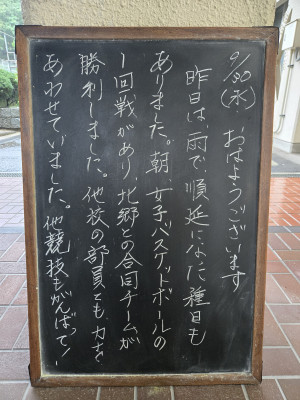 9/30(水) おはようございます
昨日は、雨で順延になた種目も
ありました。朝、女子バスケットボールの
1回戦があり、北郷との合同チームが
勝利しました。他校の部員とも力を
あわせていました。他競技もがんばって!